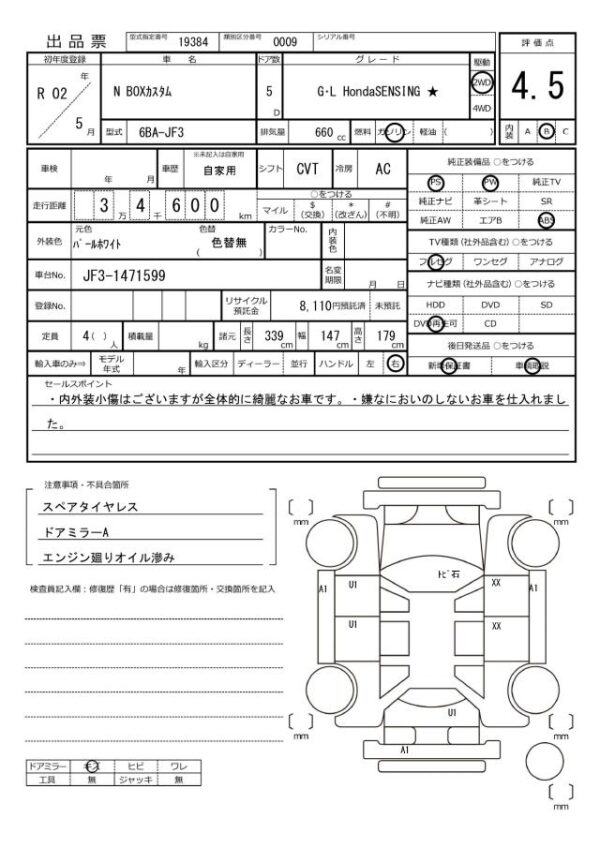 出品票
型式指定番号 19384 類別区分番号 0009 シリアル番号
評価点
4.5
内装 A B C
初年度登録 車名 ドア数 グレード 駆動
R 02 年 5 月
N BOXカスタム 5 D G・L HondaSENSING ★ 2WD
4WD
型式 6BA-JF3 排気量 660 cc 燃料 ガソリン 軽油 ( )
車検 年 月 車歴 ※未記入は自家用 自家用 シフト CVT 冷房 AC
走行距離 3 万 4 千 6 0 0 km ○をつける
マイル $(交換) *(改ざん) #(不明)
外装色 元色 パールホワイト 色替 色替無 ( ) カラーNo. 内装色
車台No. JF3-1471599 名変期限 月 日
登録No. リサイクル預託金 8,110円預託済 未預託
定員 4( )人 積載量 kg 諸元 長さ 339 cm 幅 147 cm 高さ 179 cm
輸入車のみ⇒ モデル年式 年 輸入区分 ディーラー 並行 ハンドル 左 右
純正装備品 ○をつける
PS PW 純正TV
純正ナビ 革シート SR
純正AW エアB ABS
TV種類(社外品含む)○をつける
フルセグ ワンセグ アナログ
ナビ種類(社外品含む)○をつける
HDD DVD SD
DVD再生可 CD
後日発送品 ○をつける
新車保証書 車輌取説
セールスポイント
・内外装小傷はございますが全体的に綺麗なお車です。・嫌なにおいのしないお車を仕入れまし
た。
注意事項・不具合箇所
スペアタイヤレス
ドアミラーA
エンジン廻りオイル滲み
検査員記入欄:修復歴「有」の場合は修復箇所・交換箇所を記入
ドアミラー キズ ヒビ ワレ
工具 無 ジャッキ 無
[ ] mm
[ ] mm
トビ石
A1 U1 XX A1
U1 XX
U1
A1
[ ] mm
[ ] mm
[ ] mm